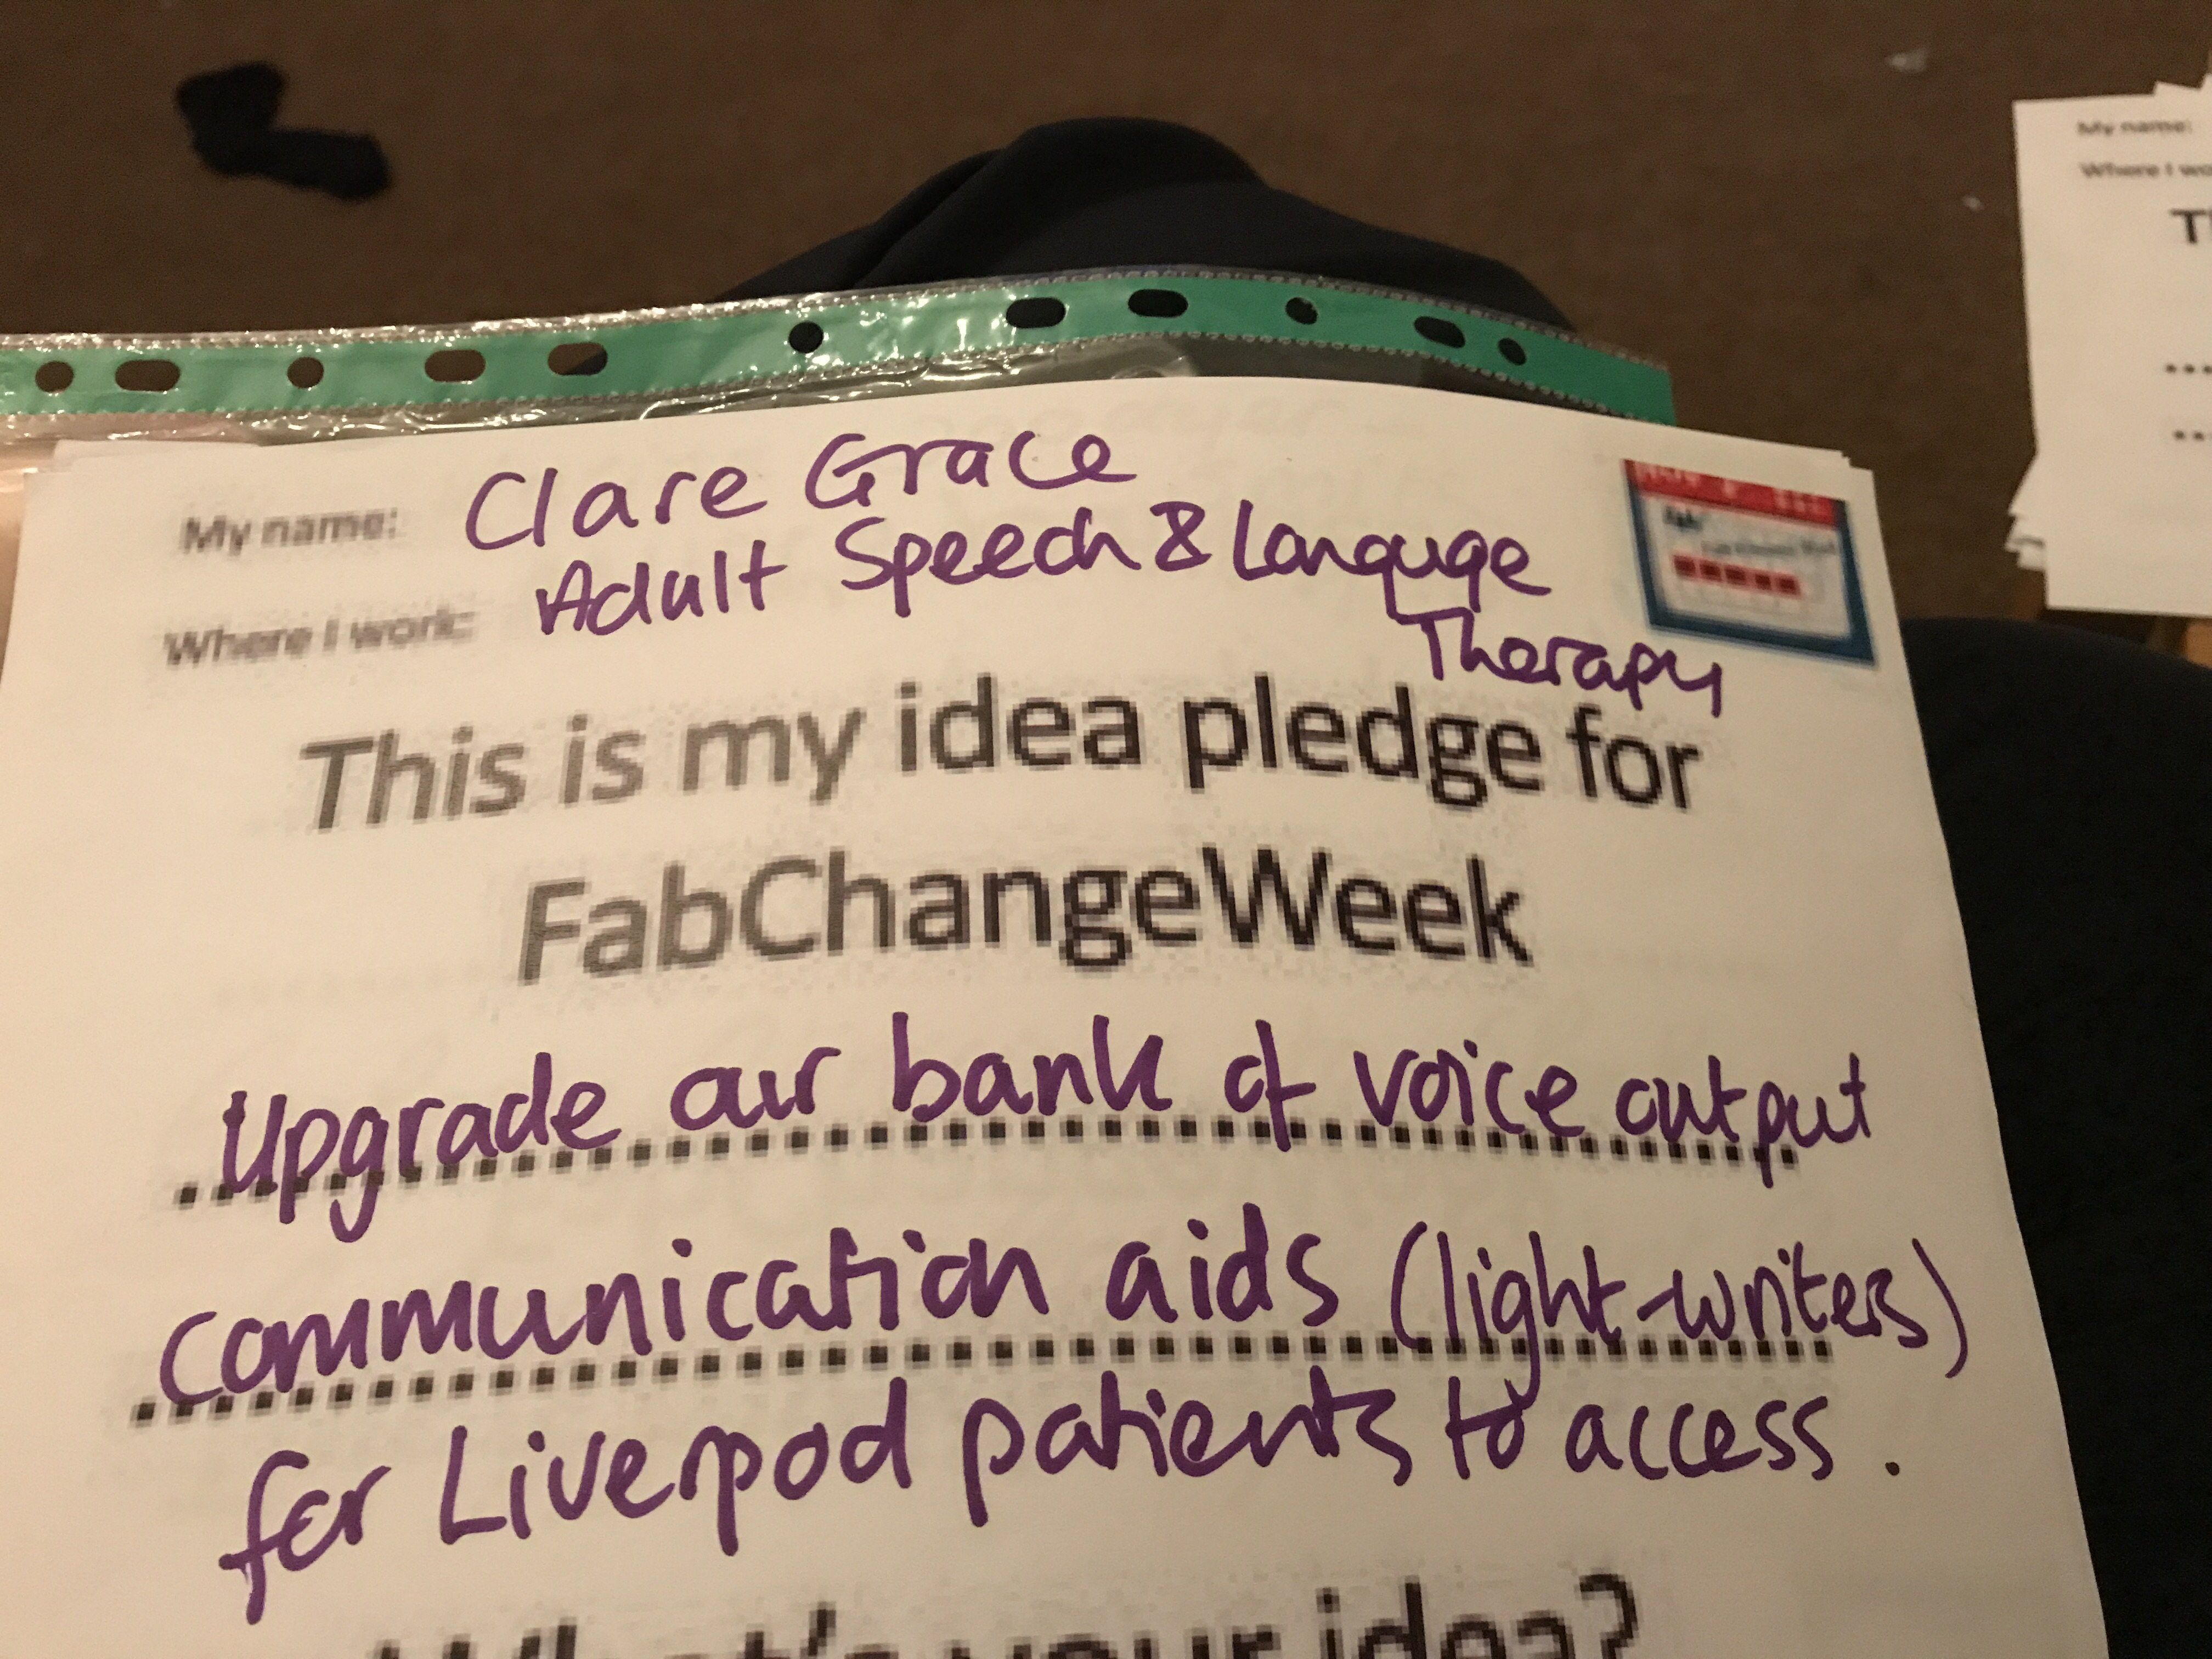 My name: Clare Grace
Where I work: Adult Speech & Language
Therapy
This is my idea pledge for
FabChangeWeek
Upgrade our bank of voice output
communication aids (light-writers)
for Liverpool patients to access.
What's your idea?
My name:
Where I wo